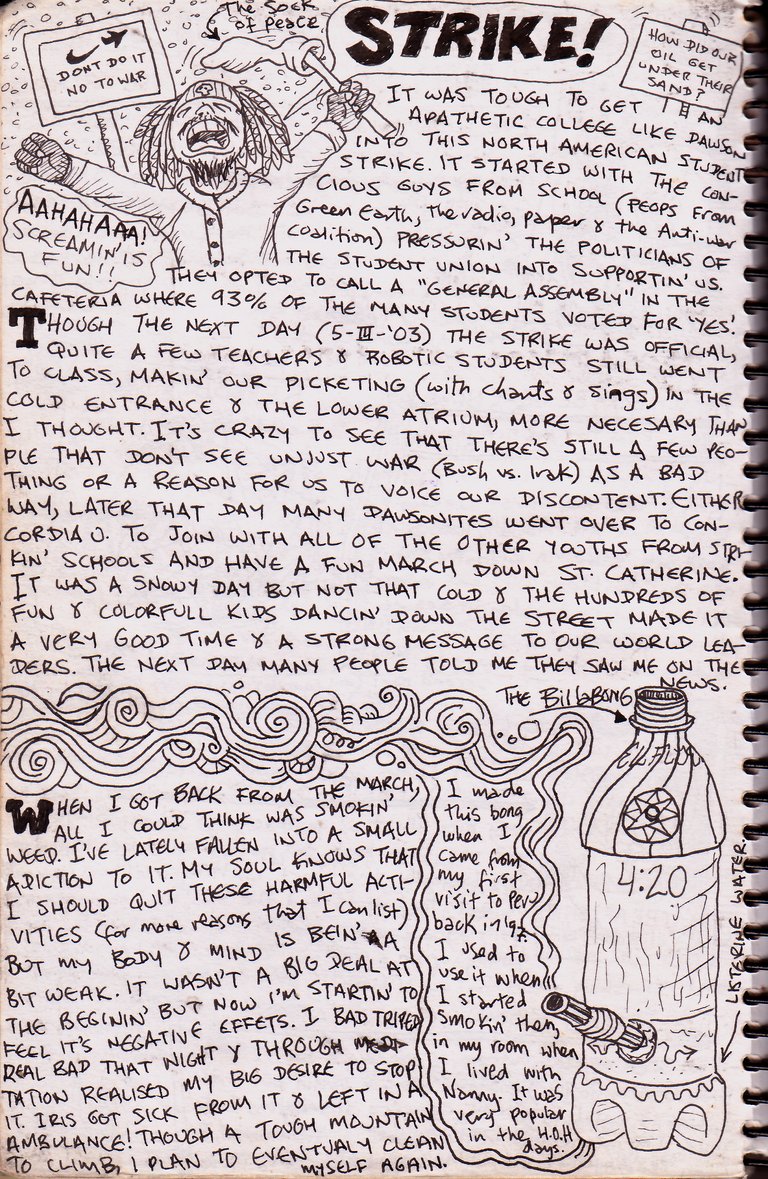 The Sock
of Peace
STRIKE!
DON'T DO IT
NO TO WAR
HOW DID OUR
OIL GET
UNDER THEIR
SAND?
AAHAHAAA!
SCREAMIN' IS
FUN!!
IT WAS TOUGH TO GET AN
APATHETIC COLLEGE LIKE DAWSON
INTO THIS NORTH AMERICAN STUDENT
STRIKE. IT STARTED WITH THE CON-
CIOUS GUYS FROM SCHOOL (PEOPS From
Green Earth, the radio, paper & the Anti-war
coalition) PRESSURIN' THE POLITICIANS OF
THE STUDENT UNION INTO SUPPORTIN' US.
THEY OPTED TO CALL A "GENERAL ASSEMBLY" IN THE
CAFETERIA WHERE 93% OF THE MANY STUDENTS VOTED FOR 'YES'.
THOUGH THE NEXT DAY (5-III-'03) THE STRIKE WAS OFFICIAL,
QUITE A FEW TEACHERS & ROBOTIC STUDENTS STILL WENT
TO CLASS, MAKIN' OUR PICKETING (with chants & sings) IN THE
COLD ENTRANCE & THE LOWER ATRIUM, MORE NECESARY THAN
I THOUGHT. IT'S CRAZY TO SEE THAT THERE'S STILL A FEW PEO-
PLE THAT DON'T SEE UNJUST WAR (Bush vs. Irak) AS A BAD
THING OR A REASON FOR US TO VOICE OUR DISCONTENT. EITHER
WAY, LATER THAT DAY MANY DAWSONITES WENT OVER TO CON-
CORDIA U. TO JOIN WITH ALL OF THE OTHER YOUTHS FROM STRI-
KIN' SCHOOLS AND HAVE A FUN MARCH DOWN ST. CATHERINE.
IT WAS A SNOWY DAY BUT NOT THAT COLD & THE HUNDREDS OF
FUN & COLORFULL KIDS DANCIN' DOWN THE STREET MADE IT
A VERY GOOD TIME & A STRONG MESSAGE TO OUR WORLD LEA-
DERS. THE NEXT DAY MANY PEOPLE TOLD ME THEY SAW ME ON THE
NEWS.
THE BillaBONG
WHEN I GOT BACK FROM THE MARCH,
ALL I COULD THINK WAS SMOKIN'
WEED. I'VE LATELY FALLEN INTO A SMALL
ADICTION TO IT. MY SOUL KNOWS THAT
I SHOULD QUIT THESE HARMFUL ACTI-
VITIES (for more reasons that I can list)
BUT MY BODY & MIND IS BEIN' A
BIT WEAK. IT WASN'T A BIG DEAL AT
THE BEGININ' BUT NOW I'M STARTIN' TO
FEEL IT'S NEGATIVE EFFETS. I BAD TRIPED
REAL BAD THAT NIGHT & THROUGH MEDI-
TATION REALISED MY BIG DESIRE TO STOP
IT. IRIS GOT SICK FROM IT & LEFT IN A
AMBULANCE! THOUGH A TOUGH MOUNTAIN
TO CLIMB, I PLAN TO EVENTUALY CLEAN
MYSELF AGAIN.
I made
this bong
when I
came from
my first
visit to Peru
back in '97.
I used to
use it when
I started
smokin' then,
in my room when
I lived with
Nanny. It was
very popular
in the H.O.H
days.
4:20
LISTERINE WATER.